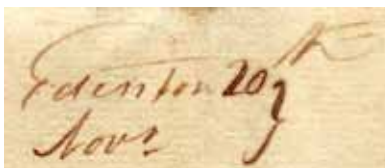 Edenton 20th
Novr